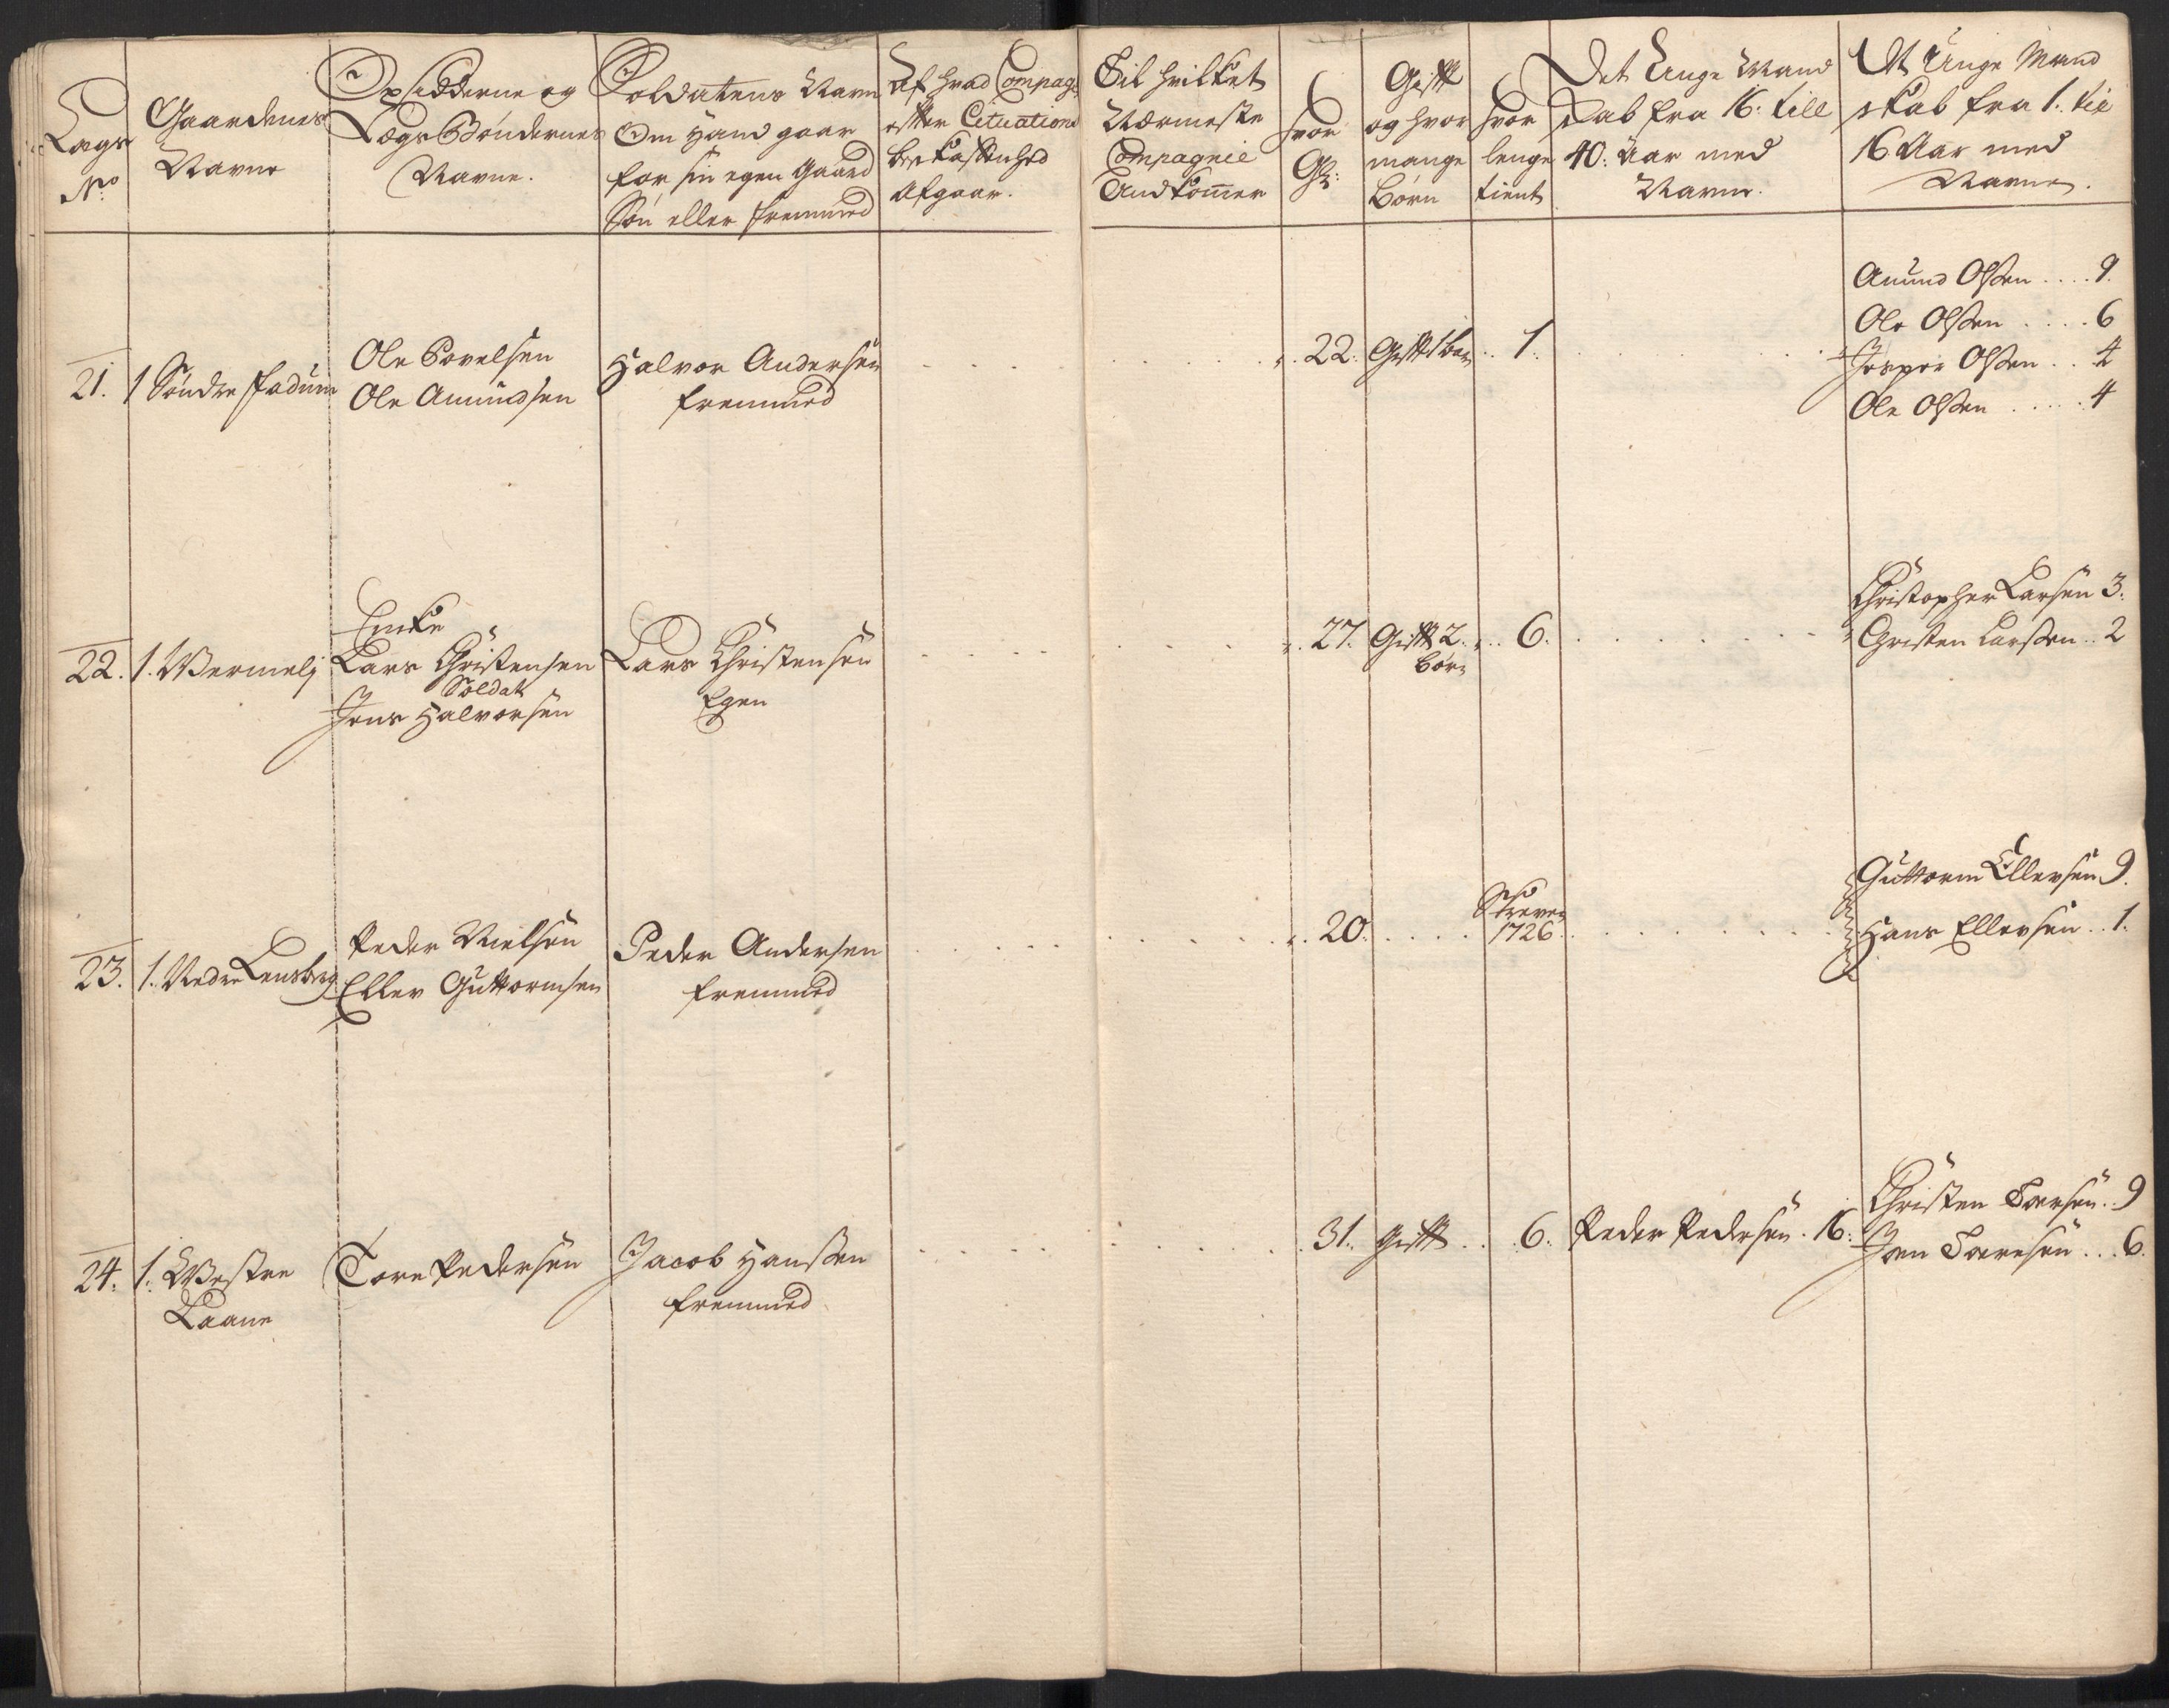 Lægs
No
Gaardenes
Navne
Opsidderne og
Lægs Bøndernes
Navne.
Soldatens Navn
Om Hand gaar
for sin egen Gaard
Søn eller fremmed
Af hvad Compag:
efter Cituations
beskaffenhed
Afgaar.
Til hvilket
Nærmeste
Compagnie
Andkom̄er
hvor
Gl:
Gifft
og hvor
mange
Børn
hvor
lenge
tient
Det Unge Mand
skab fra 16: till
40: Aar med
Navne.
Det Unge Mand
skab fra 1. til
16 Aar med
Navne.
21. 1 Søndre Fadum
Ole Povelsen
Ole Amundsen
Halvor Andersen
fremmed
22. Gifft 1 Barn 1.
Amund Olsen .... 9.
Ole Olsen .... 6
Jesper Olsen .. 4
Ole Olsen ..... 4
22. 1. Wermelj
Enke
Lars Christensen
Soldat
Jens Halvorsen
Lars Christensen
Egen
27. Gifft 2. 6.
Børn
Christopher Larsen 3.
Christen Larsen .. 2
23. 1. Nedre Lensberg
Peder Nielsen
Ellev Guttormsen
Peder Andersen
fremmed
20.
Skreven
1726
Guttorm Ellevsen 9.
Hans Ellevsen .. 1.
24. 1. Westre
Laane
Tore Pedersen
Jacob Hansen
fremmed
31. Gifft .. 6. Peder Pedersen . 16.
Christen Toresen .. 9
Jven Toresen ... 6.